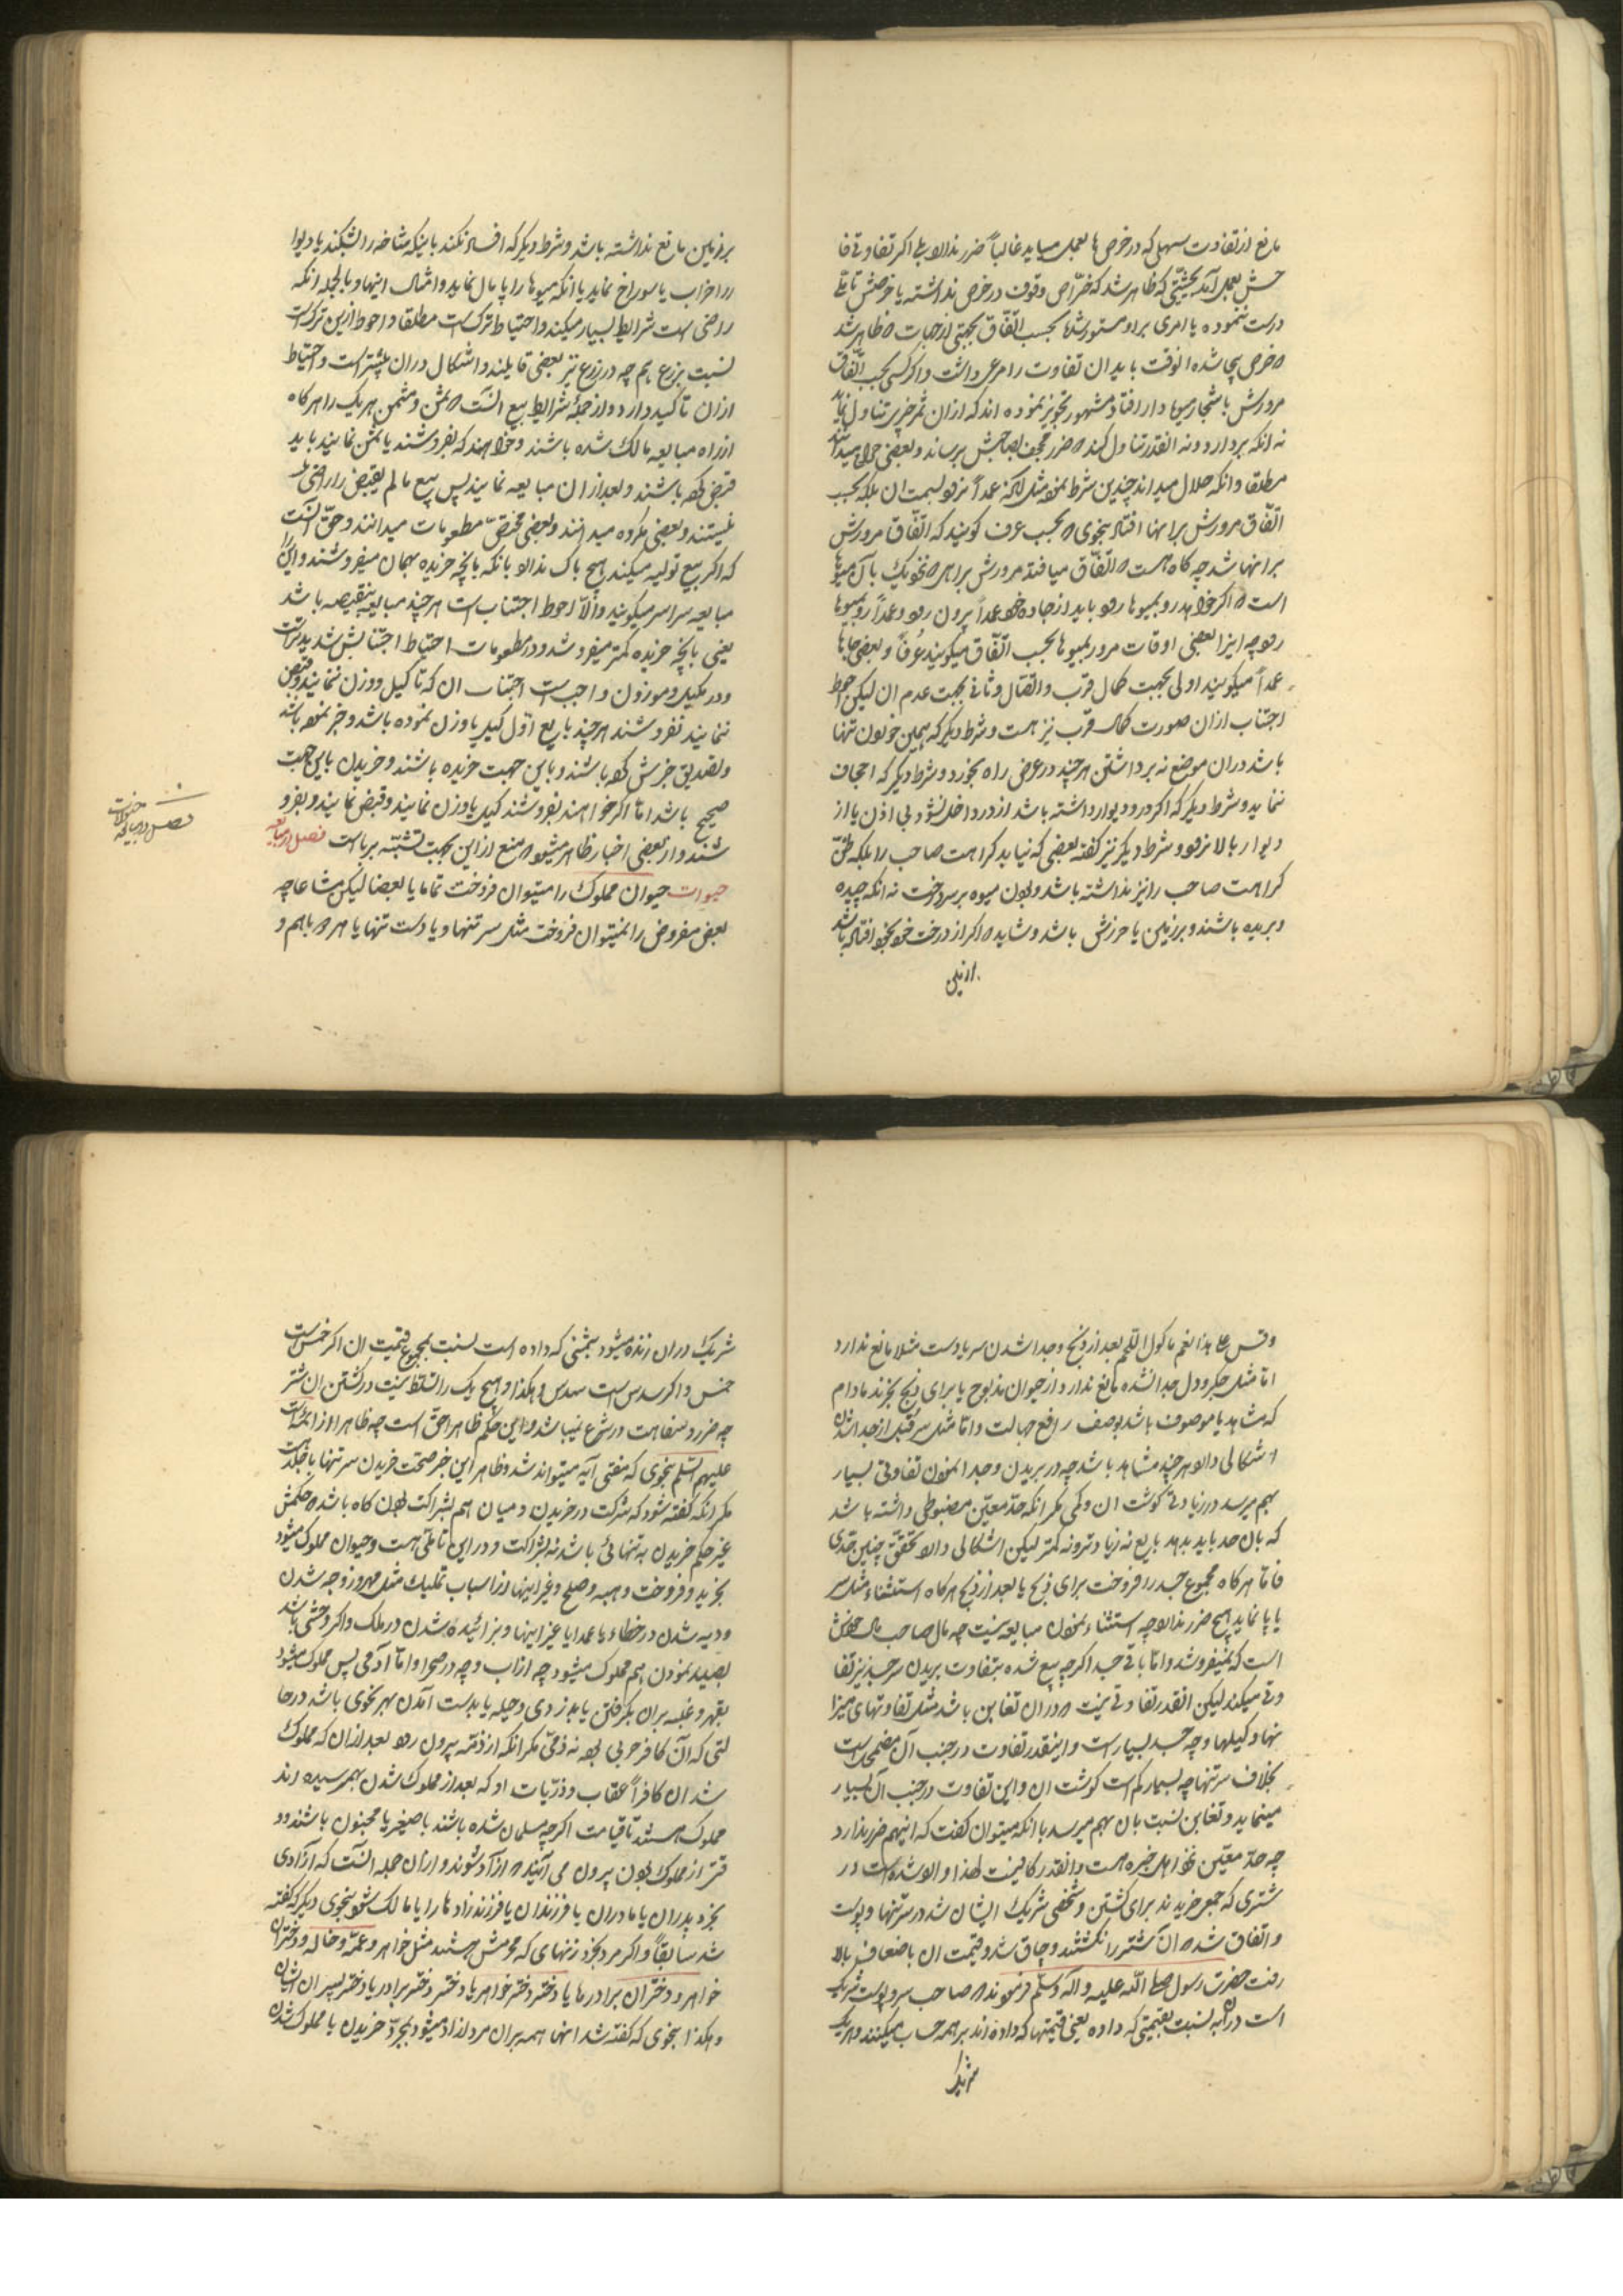 مانع از تفاوت سهلی که در خرص ها بعمل میاید غالباً ضرر ندارد بلی اکر تفاوتی فا
حش بعمل آمد بحیثیتی که ظاهر شد که خرّاص وقوف در خرص نداشته یا خرصش تا بلی
درست ننموده یا امری بر او مستور شده بحسب اتّفاق بجهتی از جهات که ظاهر شد
که خرص بیجا شده انوقت باید ان تفاوت را مرعی داشت و اکر کسی بحسب اتّفاق
مرورش باشجار میوه دار افتاد مشهور تجویز نموده اند که ازان ثمر چیزی تناول نماید
نه انکه بردارد و نه انقدر تناول کند که ضرر مجحف بصاحبش برساند و بعضی حرام میدانند
مطلقا و انکه حلال میداند چندین شرط نموده مثل انکه عمداً نرود بسمت ان بلکه بحسب
اتّفاق مرورش بر اینها افتد بنحوی که بحسب عرف کویند که اتّفاق مرورش
بر اینها شد چه کاه هست که اتّفاق میافتد مرورش براهی که نزدیک بآن میوها
است که اکر خواهد رو بمیوها رود باید از جاده خود عمداً بیرون رود و عمداً رو بمیوها
رود چه اینرا بعضی اوقات مرور بمیوها بحسب اتّفاق میکویند عُرفاً و بعضی جاها
عمداً میکویند اولی بجهت کمال قرب و اتّصال و ثانی بجهت عدم ان لیکن احوط
اجتناب ازان صورت کمال قرب نیز هست و شرط دیکر که همین خوردن تنها
باشد دران موضع نه برداشتن هرچند در عرض راه بخورد و شرط دیکر که اجحاف
ننماید و شرط دیکر که اکر در و دیوار داشته باشد از در داخل نشود بی اذن یا از
دیوار بالا نرود و شرط دیکر نیز کفته بعضی که نباید کراهت صاحب را بلکه ظنّ
کراهت صاحب را نیز نداشته باشد و بودن میوه بر سر درخت نه انکه چیده
و بریده باشند و بر زمین یا حرزش باشد و شاید که اکر از درخت خود بخود افتاده باشد
بر زمین مانع نداشته باشد و شرط دیکر که افساد نکند باینکه شاخه را بشکند یا دیوا
ر را خراب یا سوراخ نماید یا انکه میوها را پامال نماید و امثال اینها و بالجمله انکه
راضی است شرایط بسیار میکند و احتیاط ترک است مطلقا و احوط ازین ترک است
نسبت بزرع هم چه در زرع نیز بعضی قایلند و اشکال دران بیشتر است و احتیاط
ازان تاکید دارد و از جملهٔ شرایط بیع انست که ثمن و مثمن هر یک را هرکاه
از راه مبایعه مالک شده باشند و خواهند که بفروشند یا ثمن نمایند باید
قبض کرده باشند و بعد ازان مبایعه نمایند پس بیع ما لم یقبض را راضی
نیستند و بعضی مکروه میدانند و بعضی مختصّ مطعومات میدانند و حقّ انست
که اکر بیع تولیه میکند هیچ باک ندارد بانکه بانچه خریده بهمان میفروشند و این را
مبایعه سراسر میکویند و الّا احوط اجتناب است هرچند مبایعه بنقیصه باشد
یعنی بانچه خریده کمتر میفروشد و در مطعومات احتیاط اجتنابش شدیدتر است
و در مکیل و موزون واجب است اجتناب ان که تا کیل و وزن ننمایند و قبض
ننمایند نفروشند هرچند بایع اوّل کیل یا وزن نموده باشد و خبر نموده باشد
و تصدیق خبرش کرده باشند و باین جهت خریده باشند و خریدن باین جهت
صحیح باشد امّا اکر خواهند بفروشند کیل یا وزن نمایند و قبض نمایند و بفرو
شند و از بعضی اخبار ظاهر میشود که منع ازاین بجهت تشبّه برباست فصل در مبایعه
حیوانات حیوان مملوک را میتوان فروخت تماما یا بعضا لیکن مشاعا چه
بعض مفروض را نمیتوان فروخت مثل سر تنها و یا دست تنها یا هر دو باهم و
ازنین
فصل در مبایعه حیوانات
و قس علی هذا نعم ماکول اللّحم بعد از ذبح و جدا شدن سر یا دست مثلا مانع ندارد
امّا مثل جکر و دل جدا نشده مانع ندارد از حیوان مذبوح یا برای ذبح بخرند مادام
که مشاهد یا موصوف باشد بوصف رافع جهالت و امّا مثل سر قبل از جدا شدن
اشکالی دارد هرچند مشاهد باشد چه در بریدن و جدا نمودن تفاوتی بسیار
بهم میرسد در زیادتی کوشت ان و کمی مکر انکه حدّ معیّن مضبوطی داشته باشد
که بان حد باید بدهد بایع نه زیادتر و نه کمتر لیکن اشکالی دارد تحقّق چنین حدّی
فامّا هرکاه مجموع جسد را فروخت برای ذبح یا بعد از ذبح هرکاه استثناء مثل سر
یا پا نماید هیچ ضرر ندارد چه استثناء نمودن مبایعه نیست چه مال صاحب مال خودش
است که نمیفروشد و امّا باقی جسد اکرچه بیع شده بتفاوت بریدن سر جسد نیز تفا
وتی میکند لیکن انقدر تفاوتی نیست که دران تغابن باشد مثل تفاوتهای میزا
نها و کیلها و چه جسد بسیار است و اینقدر تفاوت در جنب آن مضمحل است
بخلاف سر تنها چه بسیار کم است کوشت ان و این تفاوت در جنب آن بسیار
مینماید و تغابن نسبت بان بهم میرسد با انکه میتوان کفت که اینهم ضرر ندارد
چه حدّ معیّن نزد اهل خبره هست و انقدر کافیست لهذا وارد شده است در
شتری که جمعی خریدند برای کشتن و شخصی شریک ایشان شد در سر تنها و پوست
و اتفاق شد که آن شتر را نکشتند و چاق شد و قیمت ان باضعاف بالا
رفت حضرت رسول صلی اللّه علیه و اله و سلّم فرمودند که صاحب سر و پوست شریک
است دران به نسبت بقیمتی که داده یعنی قیمتها که داده اند بر همه حساب میکنند و هر یک
شریک
شریک دران زنده میشود بثمنی که داده است نسبت بمجموع قیمت ان اکر خمس است
خمس و اکر سدس است سدس و هکذا و هیچ یک را تسلّط نیست در کشتن ان شتر
چه ضرر و سفاهت در شرع نمیباشد و این حکم ظاهرا حقّ است چه ظاهرا از ائمّه است
علیهم السّلم بنحوی که مفتی آیه میتواند شد و ظاهر این خبر صحّت خریدن سر تنها با جلد است
مکر انکه کفته شود که شرکت در خریدن و میان هم بشراکت بودن کاه باشد که حکمش
غیر حکم خریدن به تنهائی باشد نه بشراکت و در این تاملّی هست و حیوان مملوک میشود
بخرید و فروخت و هبه و صلح و غیر اینها از اسباب تملیک مثل مهر زوجه شدن
و دیه شدن در خطاء یا عمدا یا غیر اینها و بزائیده شدن در ملک و اکر وحشی باشد
بصید نمودن هم مملوک میشود چه از آب و چه در صحرا و امّا آدمی پس مملوک میشود
بقهر و غلبه بران بکرفتن یا بدزدی و حیله یا بدست آمدن بهر نحوی باشد درحا
لتی که آن کافر حربی بوده نه ذمّی مکر انکه از ذمّه بیرون رود بعد ازان که مملوک
شد ان کافر اعقاب و ذرّیات او که بعد از مملوک شدن بهم رسیده اند
مملوک هستند تا قیامت اکرچه مسلمان شده باشند یا صغیر یا مجنون باشند و و
قتی از مملوک بودن بیرون می آیند که ازاد شوند و ازان جمله انست که ازادی
بخرد پدران یا مادران یا فرزندان یا فرزند زادها را یا مالک شود بنحوی دیکر که کفته
شد سابقاً و اکر مرد بخرد زنهای که محرمش هستند مثل خواهر و عمّه و خاله و دختران
خواهر و دختران برادرها یا دختر دختر خواهر یا دختر دختر برادر یا دختر پسر ان ایشان
و هکذا بنحوی که کفته شد اینها همه بران مرد ازاد میشود بمجرّد خریدن یا مملوک شدن